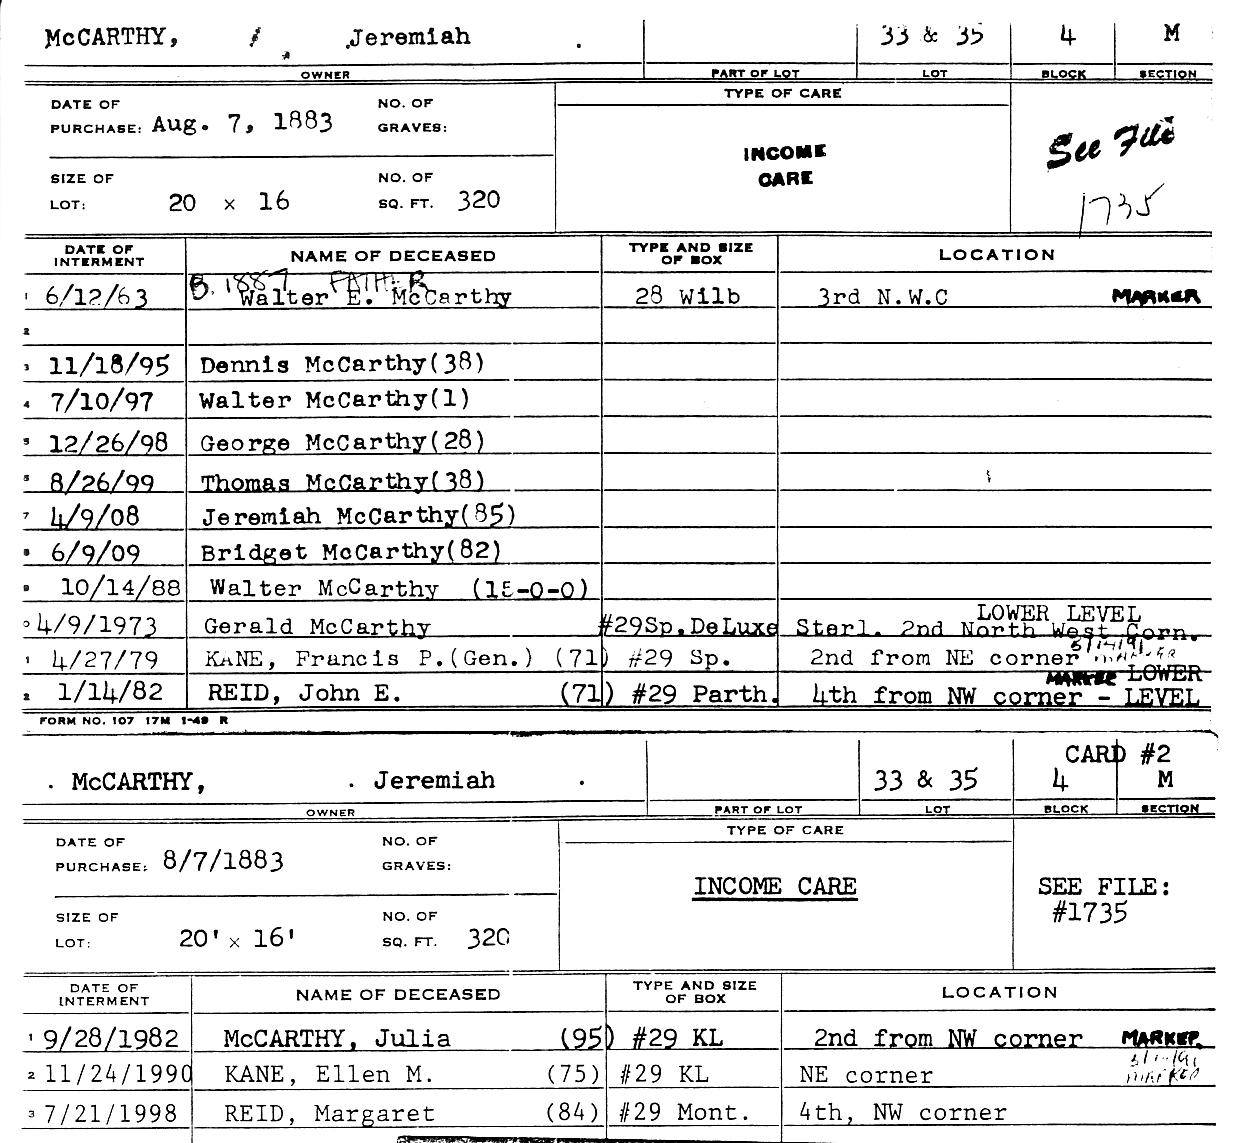 McCARTHY, Jeremiah . 33 & 35 4 M
OWNER PART OF LOT LOT BLOCK SECTION
DATE OF PURCHASE: Aug. 7, 1883 NO. OF GRAVES: TYPE OF CARE
INCOME CARE
See File
1735
SIZE OF LOT: 20 x 16 NO. OF SQ. FT. 320
DATE OF INTERMENT NAME OF DECEASED TYPE AND SIZE OF BOX LOCATION
B. 1887 FATHER
1 6/12/63 Walter E. McCarthy 28 Wilb 3rd N.W.C MARKER
2
3 11/18/95 Dennis McCarthy(38)
4 7/10/97 Walter McCarthy(1)
5 12/26/98 George McCarthy(28)
8/26/99 Thomas McCarthy(38)
7 4/9/08 Jeremiah McCarthy(85)
6/9/09 Bridget McCarthy(82)
10/14/88 Walter McCarthy (15-0-0)
LOWER LEVEL
0 4/9/1973 Gerald McCarthy #29Sp.DeLuxe Sterl. 2nd North West Corn.
1 4/27/79 KANE, Francis P.(Gen.) (71) #29 Sp. 2nd from NE corner 5/14/91 MARKER
2 1/14/82 REID, John E. (71) #29 Parth. 4th from NW corner - LOWER LEVEL MARKER
FORM NO. 107 17M 1-49 R
CARD #2
. McCARTHY, . Jeremiah . 33 & 35 4 M
OWNER PART OF LOT LOT BLOCK SECTION
DATE OF PURCHASE: 8/7/1883 NO. OF GRAVES: TYPE OF CARE
INCOME CARE
SEE FILE:
#1735
SIZE OF LOT: 20' x 16' NO. OF SQ. FT. 320
DATE OF INTERMENT NAME OF DECEASED TYPE AND SIZE OF BOX LOCATION
1 9/28/1982 McCARTHY, Julia (95) #29 KL 2nd from NW corner MARKER
2 11/24/1990 KANE, Ellen M. (75) #29 KL NE corner MARKER
3 7/21/1998 REID, Margaret (84) #29 Mont. 4th, NW corner